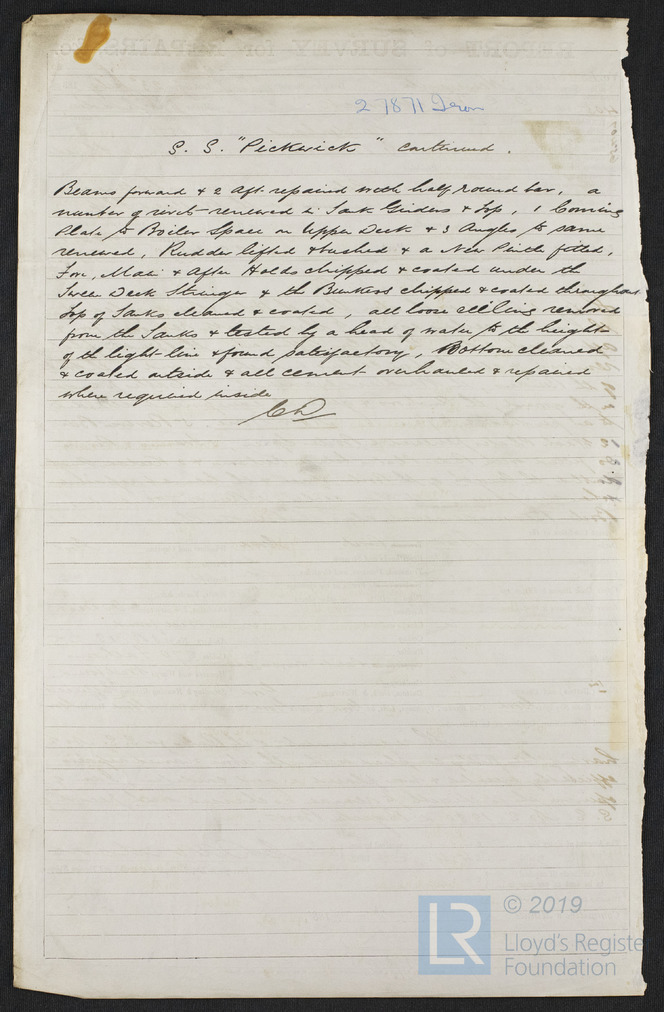 27871 Iron
S. S. "Pickwick" continued.
Beams forward & 2 aft repaired with half round bar, a
number of rivets renewed in Tank Girders & top, 1 Coming
Plate to Boiler Space on Upper Deck & 3 Angles to same
renewed, Rudder lifted & bushed & a New Pintle fitted,
Fore, Main & After Holds chipped & coated under the
Tween Deck Stringer & the Bunkers chipped & coated throughout
top of Tanks cleaned & coated, all loose ceiling removed
from the Tanks & tested by a head of water to the height
of the light-line & found satisfactory, Bottom cleaned
& coated outside & all cement overhauled & repaired
where required inside
LR
© 2019
Lloyd's Registe
Foundation